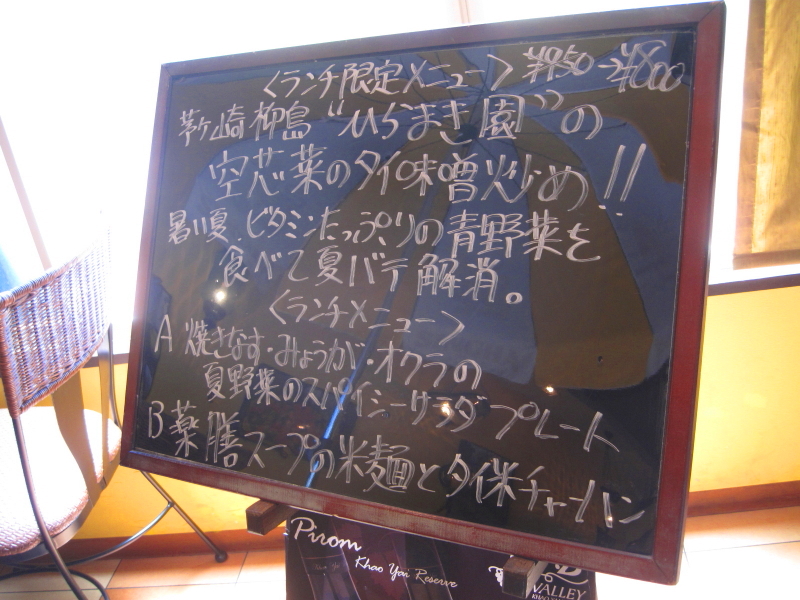 〈ランチ限定メニュー〉 ¥950→¥800
茅ヶ崎 柳島 “ひらまき園”の
空芯菜のタイ味噌炒め!!
暑い夏、ビタミンたっぷりの青野菜を
食べて夏バテ解消。
〈ランチメニュー〉
A 焼きなす・みょうが・オクラの
夏野菜のスパイシーサラダプレート
B 薬膳スープの米麺とタイ米チャーハン
Pirom
Khao Yai Reserve
VALLEY